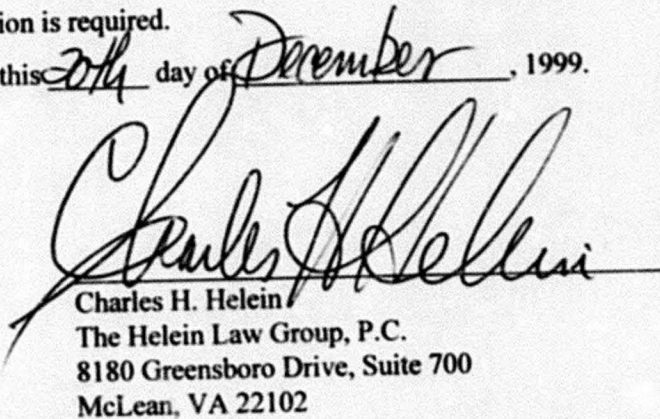 ion is required.
this 20th day of December, 1999.
Charles H Helein
Charles H. Helein
The Helein Law Group, P.C.
8180 Greensboro Drive, Suite 700
McLean, VA 22102